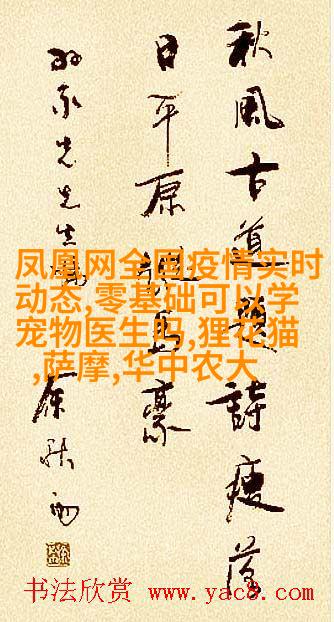 秋風古道題詩瘦落
日平原馬豪
先生
余秋雨
凤凰网全国疫情实时
动态,零基础可以学
宠物医生吗,狸花猫
,萨摩,华中农大
书法欣赏 www.yac8.com